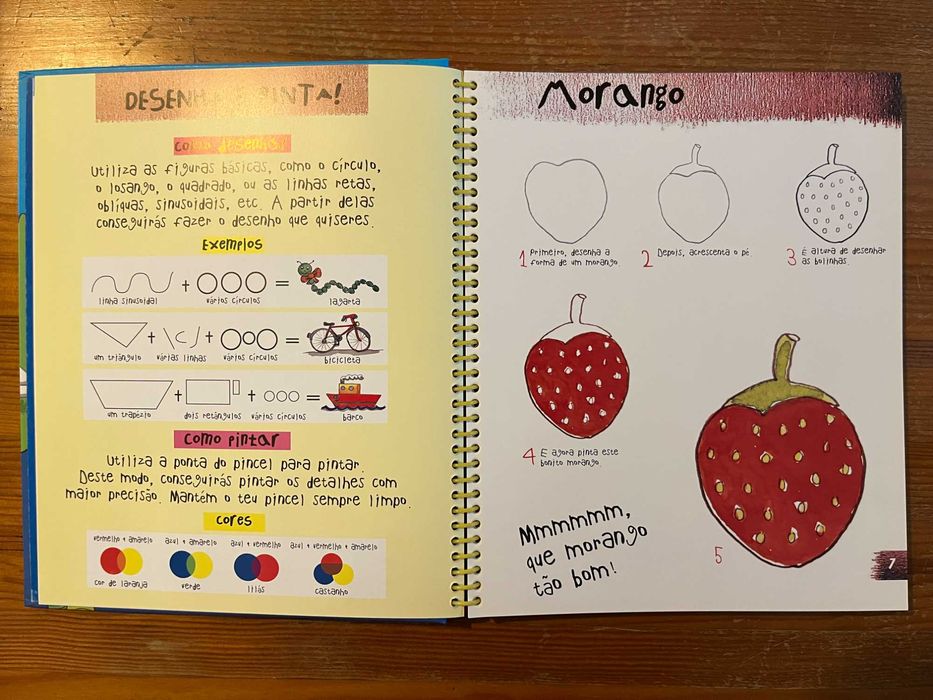 DESENHA E PINTA!
Como desenhar
Utiliza as figuras básicas, como o círculo,
o losango, o quadrado, ou as linhas retas,
oblíquas, sinusoidais, etc. A partir delas
conseguirás fazer o desenho que quiseres.
Exemplos
+ =
linha sinusoidal vários círculos lagarta
+ + =
um triângulo várias linhas vários círculos bicicleta
+ + =
um trapézio dois retângulos vários círculos barco
Como pintar
Utiliza a ponta do pincel para pintar.
Deste modo, conseguirás pintar os detalhes com
maior precisão. Mantém o teu pincel sempre limpo.
Cores
vermelho + amarelo azul + amarelo azul + vermelho azul + vermelho + amarelo
cor de laranja verde lilás castanho
Morango
1 Primeiro, desenha a
forma de um morango
2 Depois, acrescenta o pé
3 É altura de desenhar
as bolinhas.
4 E agora pinta este
bonito morango
Mmmmmm,
que morango
tão bom!
5
7